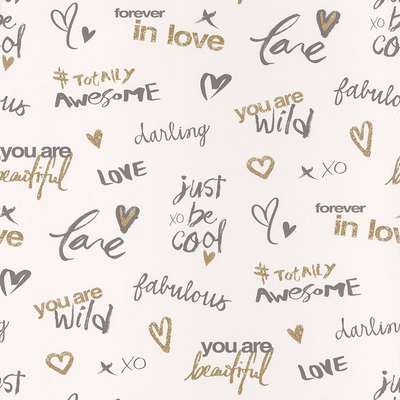 forever
in love
love
xo be
cool
# TOTALLY
AWESOME
you are
wild
fabulous
darling
you are
beautiful
LOVE
just
xo be
cool
x XO
forever
in love
love
love
# TOTALLY
AWESOME
fabulous
you are
wild
darling
you are
beautiful
LOVE
x XO
just
just